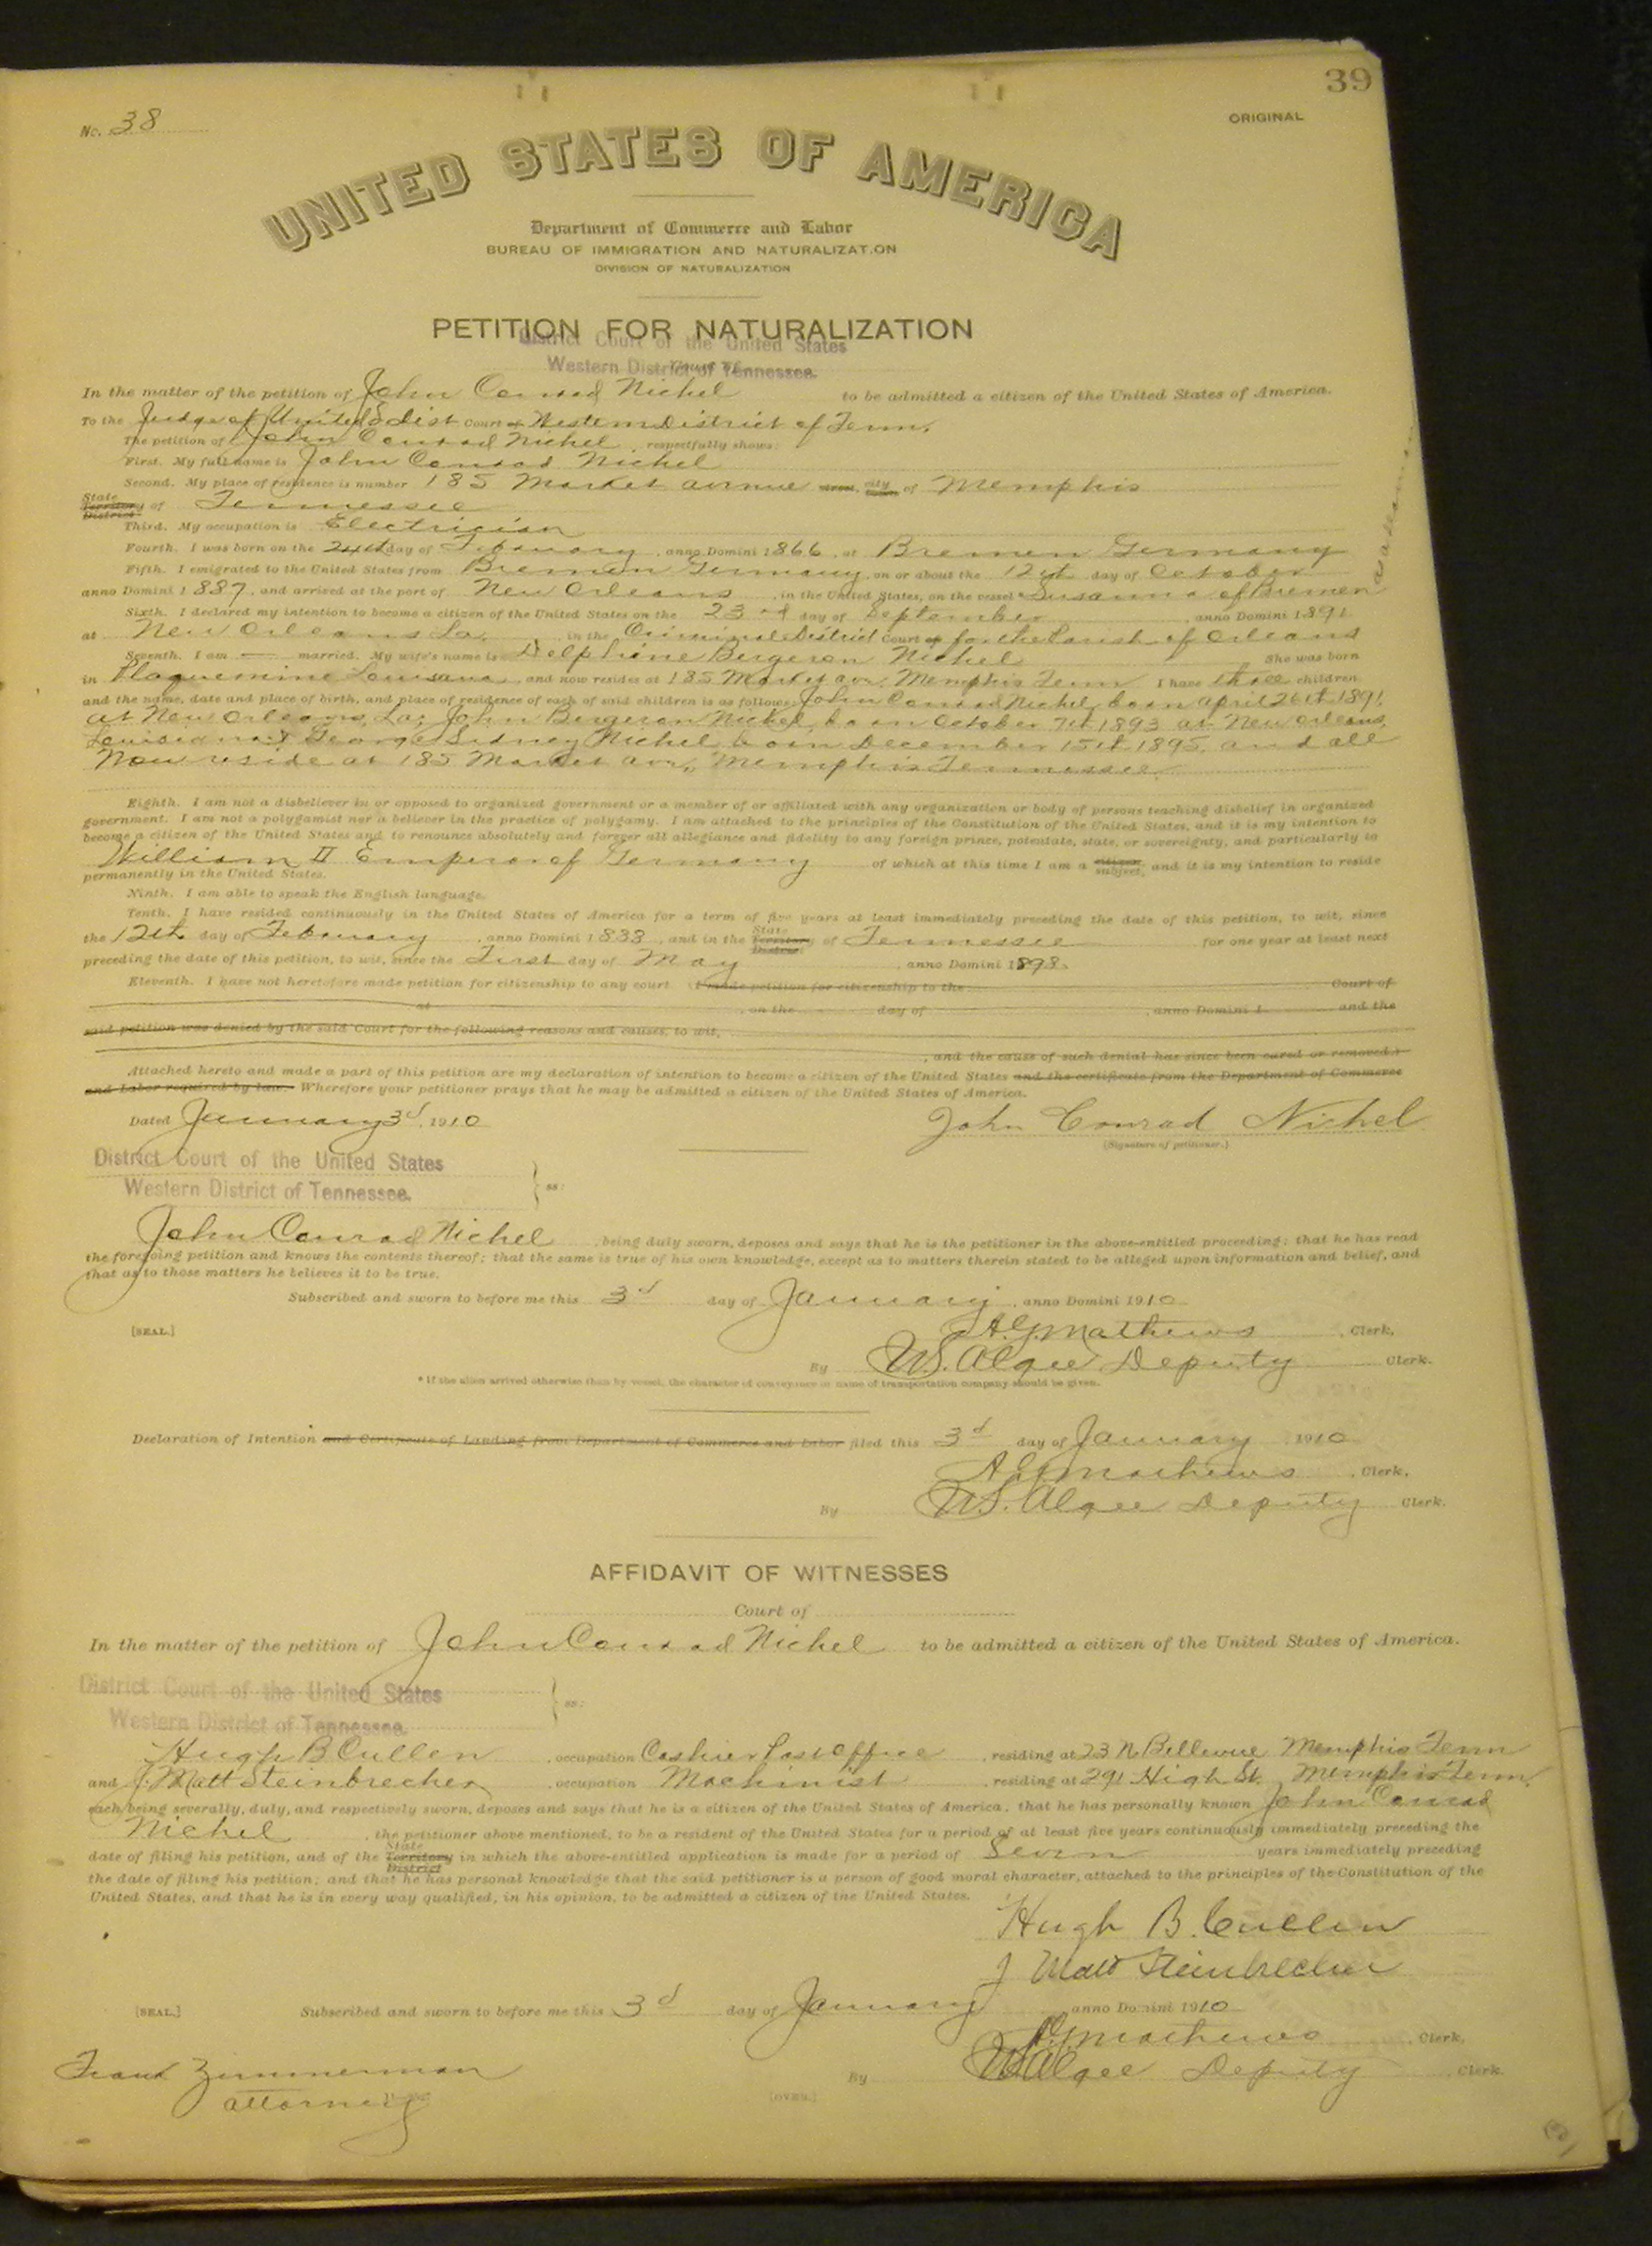 39
No. 38
ORIGINAL
UNITED STATES OF AMERICA
Department of Commerce and Labor
BUREAU OF IMMIGRATION AND NATURALIZAT.ON
DIVISION OF NATURALIZATION
PETITION FOR NATURALIZATION
District Court of the United States
Western District of Tennessee.
In the matter of the petition of John Conrad Nichel to be admitted a citizen of the United States of America.
To the Judge of United S dist Court of Western District of Tenn.
The petition of John Conrad Nichel respectfully shows:
First. My full name is John Conrad Nichel
Second. My place of residence is number 185 Market avenue street, city town of Memphis
State Territory District of Tennessee
Third. My occupation is Electrician
Fourth. I was born on the day of February, anno Domini 1866, at Bremen Germany
Fifth. I emigrated to the United States from Bremen Germany, on or about the 12th day of October
anno Domini 1887, and arrived at the port of New Orleans, in the United States, on the vessel * Susanna of Bremen
Sixth. I declared my intention to become a citizen of the United States on the 23rd day of September, anno Domini 1891
at New Orleans La. in the Criminal District Court of for the Parish of Orleans
Seventh. I am — married. My wife's name is Delphine Bergeron Nichel She was born
in Plaquemine Louisiana, and now resides at 185 Market ave. Memphis Tenn I have three children,
and the name, date and place of birth, and place of residence of each of said children is as follows: John Conrad Nichel, born april 26th 1891,
at New Orleans, La; John Bergeron Nichel, born October 7th 1893 at New Orleans,
Louisiana & George Sidney Nichel born December 15th 1895, and all
Now reside at 185 Market ave, Memphis Tennessee.
Eighth. I am not a disbeliever in or opposed to organized government or a member of or affiliated with any organization or body of persons teaching disbelief in organized
government. I am not a polygamist nor a believer in the practice of polygamy. I am attached to the principles of the Constitution of the United States, and it is my intention to
become a citizen of the United States and to renounce absolutely and forever all allegiance and fidelity to any foreign prince, potentate, state, or sovereignty, and particularly to
William II Emperor of Germany of which at this time I am a citizen subject, and it is my intention to reside
permanently in the United States.
Ninth. I am able to speak the English language.
Tenth. I have resided continuously in the United States of America for a term of five years at least immediately preceding the date of this petition, to wit, since
the 12th day of February, anno Domini 1888, and in the State Territory District of Tennessee for one year at least next
preceding the date of this petition, to wit, since the First day of May, anno Domini 1898.
Eleventh. I have not heretofore made petition for citizenship to any court. (I made petition for citizenship to the Court of
at, on the day of, anno Domini 1 and the
said petition was denied by the said Court for the following reasons and causes, to wit,
, and the cause of such denial has since been cured or removed.)
Attached hereto and made a part of this petition are my declaration of intention to become a citizen of the United States and the certificate from the Department of Commerce
and Labor required by law. Wherefore your petitioner prays that he may be admitted a citizen of the United States of America.
Dated January 3d, 1910
John Conrad Nichel
(Signature of petitioner.)
District Court of the United States
Western District of Tennessee.
ss:
John Conrad Nichel, being duly sworn, deposes and says that he is the petitioner in the above-entitled proceeding; that he has read
the foregoing petition and knows the contents thereof; that the same is true of his own knowledge, except as to matters therein stated to be alleged upon information and belief, and
that as to those matters he believes it to be true.
Subscribed and sworn to before me this 3d day of January, anno Domini 1910
[SEAL.]
A.G. Mathews, Clerk.
By W.S. Algee Deputy Clerk.
* If the alien arrived otherwise than by vessel, the character of conveyance or name of transportation company should be given.
Declaration of Intention and Certificate of Landing from Department of Commerce and Labor filed this 3d day of January 1910
A G Mathews, Clerk.
By W.S. Algee Deputy Clerk.
AFFIDAVIT OF WITNESSES
Court of
In the matter of the petition of John Conrad Nichel to be admitted a citizen of the United States of America.
District Court of the United States
Western District of Tennessee.
ss:
Hugh B Cullen, occupation Cashier Post office, residing at 23 N. Bellevue Memphis Tenn
and J. Matt Steinbrecher, occupation Machinist, residing at 291 High St. Memphis Tenn,
each being severally, duly, and respectively sworn, deposes and says that he is a citizen of the United States of America, that he has personally known John Conrad
Nichel, the petitioner above mentioned, to be a resident of the United States for a period of at least five years continuously immediately preceding the
date of filing his petition, and of the State Territory District in which the above-entitled application is made for a period of Seven years immediately preceding
the date of filing his petition; and that he has personal knowledge that the said petitioner is a person of good moral character, attached to the principles of the Constitution of the
United States, and that he is in every way qualified, in his opinion, to be admitted a citizen of the United States.
Hugh B. Cullen
J Matt Steinbrecher
[SEAL.]
Subscribed and sworn to before me this 3d day of January anno Domini 1910
A G Mathews, Clerk.
By W S Algee Deputy Clerk.
Frank Zimmerman
attorney
[OVER.]